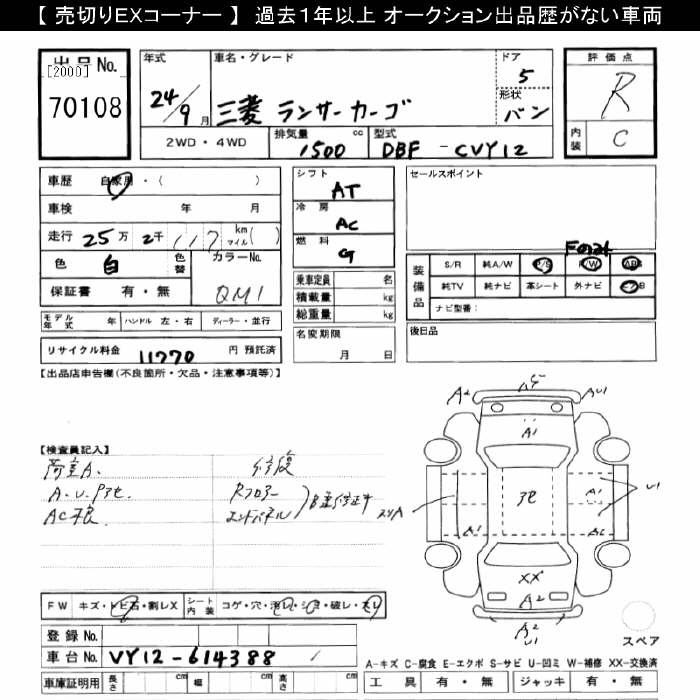 【 売切りEXコーナー 】 過去1年以上 オークション出品歴がない車両
出品No.
[2000]
70108
年式
24/9月
車名・グレード
三菱 ランサーカーゴ
ドア
5
形状
バン
評価点
R
内装
C
2WD・4WD
排気量
1500
cc
型式
DBF - CVY12
車歴
自家用・( )
車検
年 月
走行
25万 2千
km
マイル( )
色
白
色替
カラーNo.
QM1
保証書
有・無
シフト
AT
冷房
AC
燃料
G
乗車定員 名
積載量 kg
総重量 kg
名変期限
月 日
セールスポイント
装備品
S/R
純A/W
P/S
P/W
ABS
純TV
純ナビ
革シート
外ナビ
ナビ型番:
後日品
モデル年式 年
ハンドル 左・右
ディーラー・並行
リサイクル料金
11770
円 預託済
【出品店申告欄(不良箇所・欠品・注意事項等)】
【検査員記入】
荷室A.
修復
Rフロアー
エンドパネル
A1
A2
XX
U1
FW
キズ・トビ石・割レX
シート内装
コゲ・穴・汚レ・シミ・破レ・スレ
登録No.
車台No.
VY12-614388
車庫証明用
長さ cm
幅 cm
高さ cm
スペア
A-キズ C-腐食 E-エクボ S-サビ U-凹ミ W-補修 XX-交換済
工具
有・無
ジャッキ
有・無